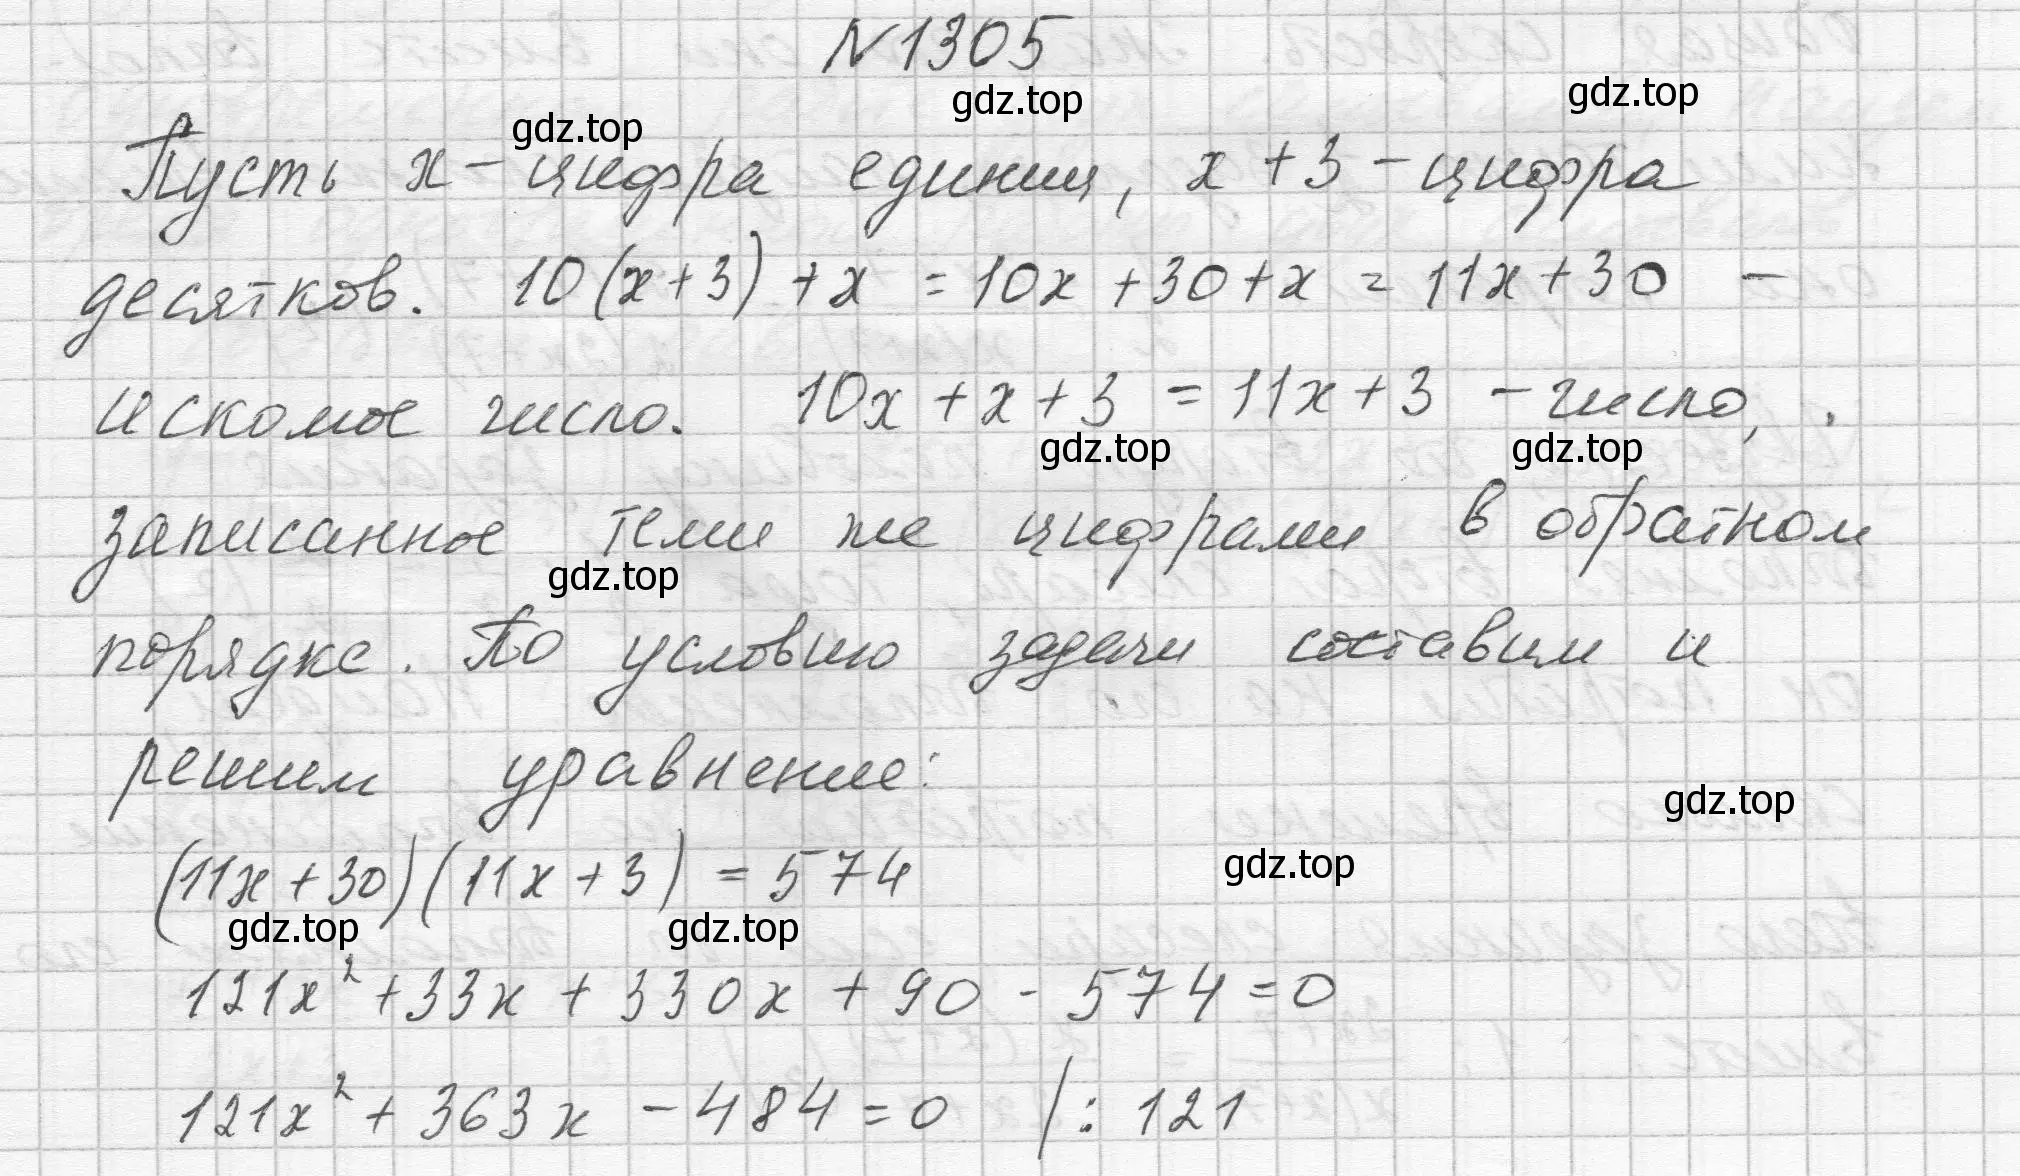 N 1305
gdz.top
gdz.top
gdz.top
Пусть x - цифра единиц, x + 3 - цифра
десятков. 10(x+3) + x = 10x + 30 + x = 11x + 30 -
искомое число. 10x + x + 3 = 11x + 3 - число,
gdz.top
gdz.top
записанное теми же цифрами в обратном
gdz.top
порядке. По условию задачи составим и
решим уравнение:
gdz.top
(11x + 30)(11x + 3) = 574
gdz.top
gdz.top
gdz.top
121x² + 33x + 330x + 90 - 574 = 0
121x² + 363x - 484 = 0 | : 121